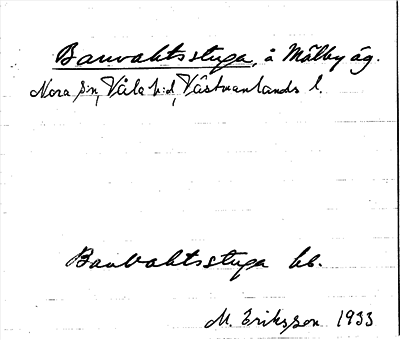 Banvaktsstuga, å Målby äg.
Nora sn, Våla h:d, Västmanlands l.
Banvaktsstuga bb.
M. Eriksson 1933